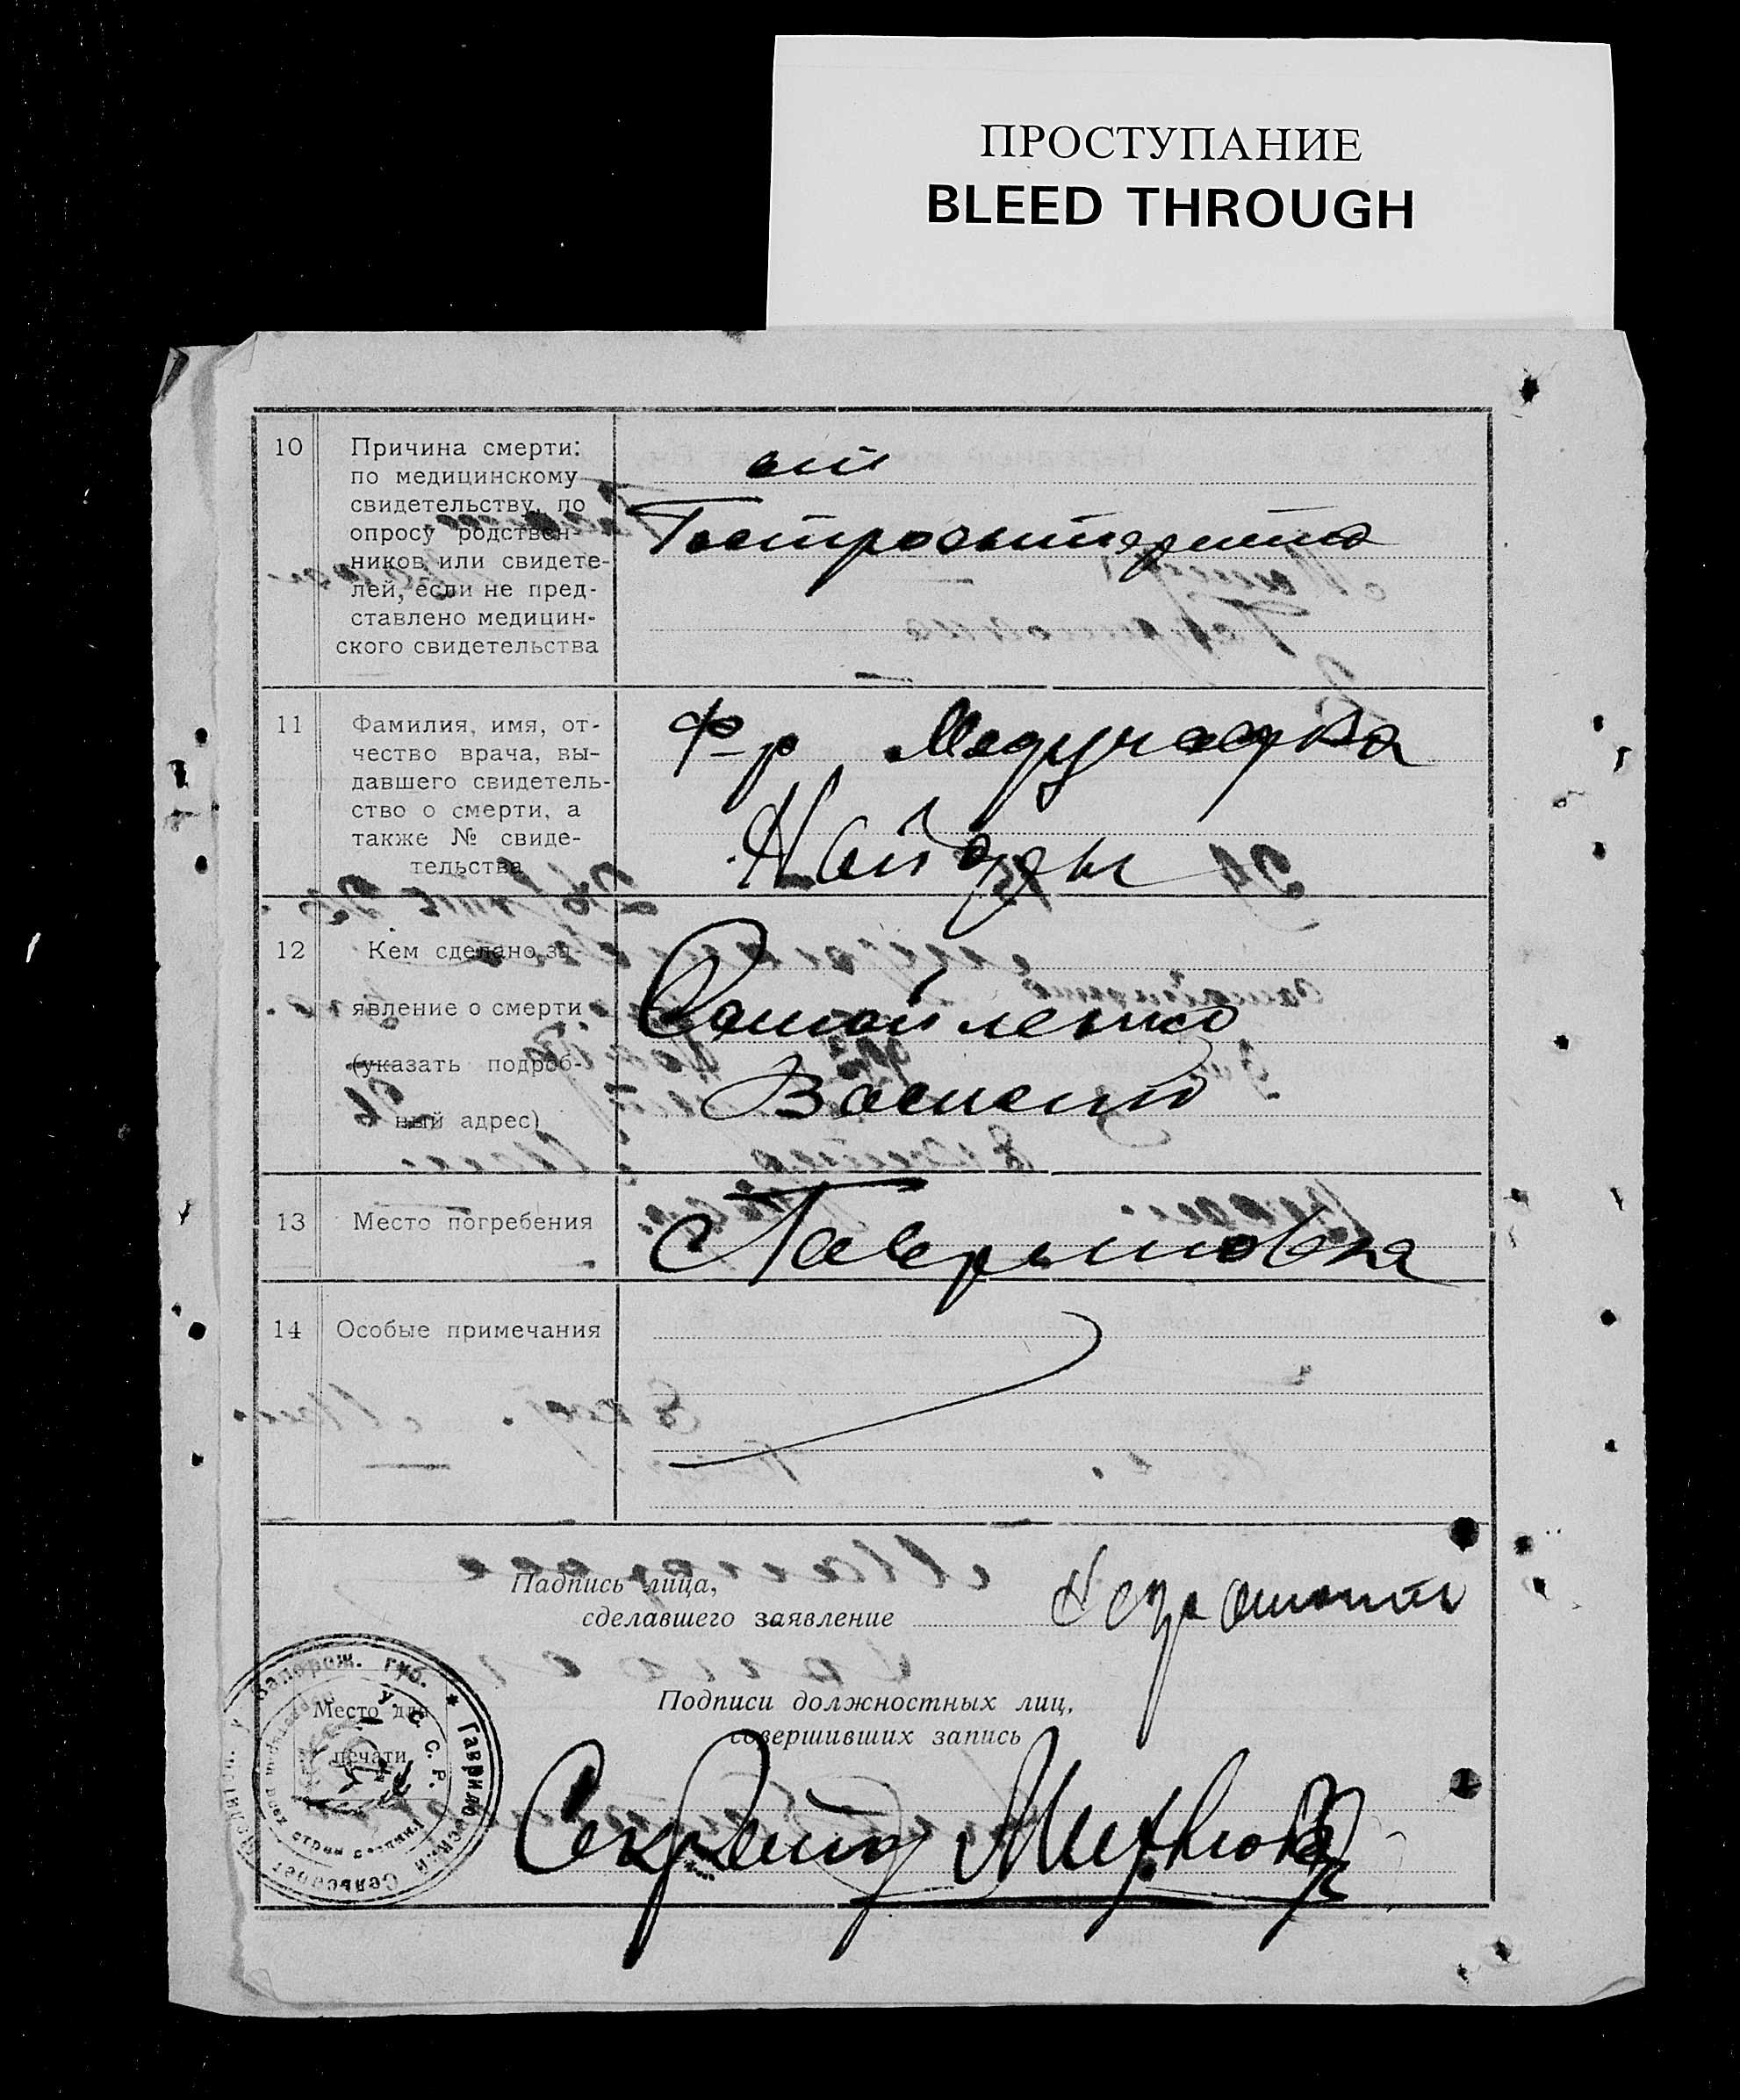 ПРОСТУПАНИЕ
BLEED THROUGH
10
Причина смерти:
по медицинскому
свидетельству, по
опросу родствен-
ников или свидете-
лей, если не пред-
ставлено медицин-
ского свидетельства
от
Гастроэнтерита
11
Фамилия, имя, от-
чество врача, вы-
давшего свидетель-
ство о смерти, а
также № свиде-
тельства
Ф-р Медучастка
Найды
12
Кем сделано за-
явление о смерти
(указать подроб-
ный адрес)
Самойленко
13
Место погребения
с Гавриловка
14
Особые примечания
Падпись лица,
сделавшего заявление
Неграмотн
Подписи должностных лиц,
совершивших запись
Место для
печати
Запорож. губ. * Гавриловский Сельсовет
У. С. С. Р.
всех стран
Секретарь